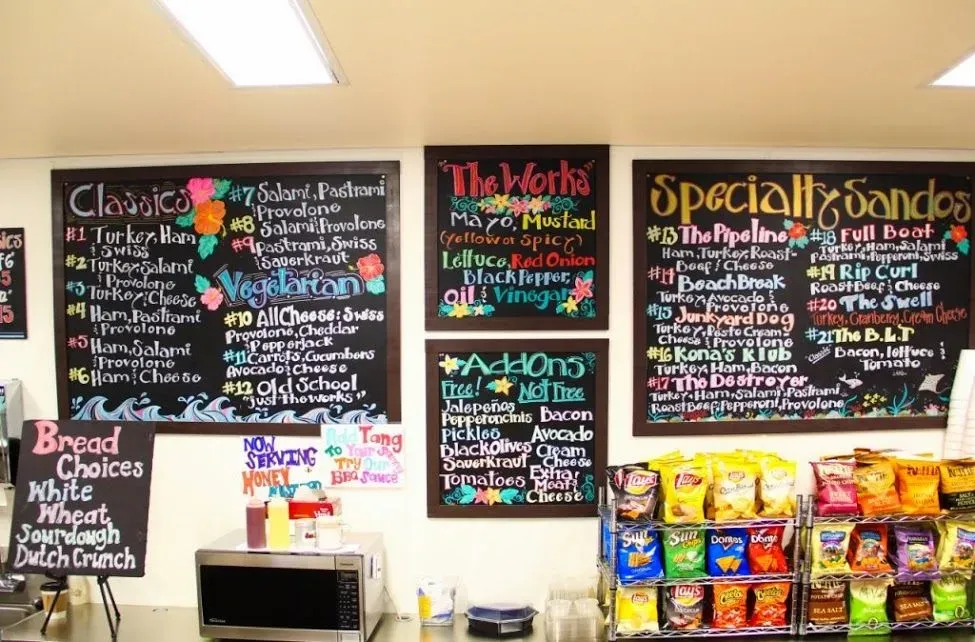 Classics
#1 Turkey, Ham
& Swiss
#2 Turkey, Salami
& Provolone
#3 Turkey, & Cheese
#4 Ham, Pastrami
& Provolone
#5 Ham, Salami
& Provolone
#6 Ham & Cheese
#7 Salami, Pastrami
& Provolone
#8 Salami & Provolone
#9 Pastrami, Swiss
& Sauerkraut
Vegetarian
#10 All Cheese: Swiss
Provolone, Cheddar
& Pepperjack
#11 Carrots, Cucumbers
Avocado & Cheese
#12 Old School
"just the works"
The Works
Mayo, Mustard
(Yellow or Spicy)
Lettuce, Red Onion
Black Pepper,
Oil & Vinegar
Add Ons
Free!
Jalapeños
Pepperoncinis
Pickles
Black Olives
Sauerkraut
Tomatoes
Not Free
Bacon
Avocado
Cream
Cheese
Extra!
Meat &
Cheese
Specialty Sandos
#13 The Pipeline
Ham, Turkey, Roast-
Beef & Cheese
#14 Beach Break
Turkey, Avocado &
Provolone
#15 Junkyard Dog
Turkey, Pesto Cream-
Cheese & Provolone
#16 Kona's Klub
Turkey, Ham, Bacon
#17 The Destroyer
Turkey, Ham, Salami, Pastrami
Roast Beef, Pepperoni, Provolone
#18 Full Boat
Turkey, Ham, Salami
Pastrami, Pepperoni, Swiss
#19 Rip Curl
Roast Beef & Cheese
#20 The Swell
Turkey, Cranberry, Cream Cheese
#21 The B.L.T
Classic
Bacon, lettuce &
Tomato
Bread
Choices
White
Wheat
Sourdough
Dutch Crunch
NOW
SERVING
HONEY
Add Tang
to Your
Try Our
BBQ Sauce
Panasonic
Lay's
Lay's
Sun Chips
Sun Chips
Doritos
Doritos
Lay's
Lay's
Cheetos
Cheetos
Hawaiian
Sea Salt